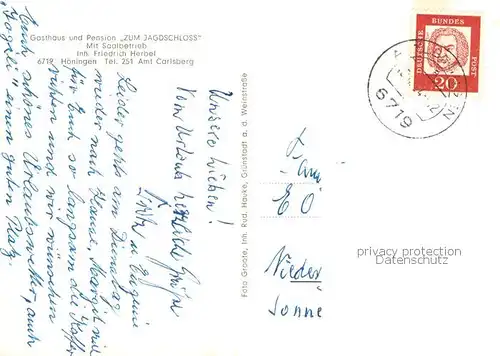 Gasthaus und Pension „ZUM JAGDSCHLOSS"
Mit Saalbetrieb
Inh. Friedrich Herbel
6719 Höningen Tel. 251 Amt Carlsberg
Unsere Lieben!
Vom Urlaub herzliche Grüße
u. Eugenie
Leider geht's am Dienstag
wieder nach Hause. Margit will
für Euch so langsam die Koffer
richten und wir wünschen
Euch schönes Urlaubswetter, auch
einen guten Platz.
Foto Groote, Inh. Rud. Hauke, Grünstadt a. d. Weinstraße
DEUTSCHE
BUNDES
POST
20
6719
Fam
Nieder
Sonne
privacy protection
Datenschutz